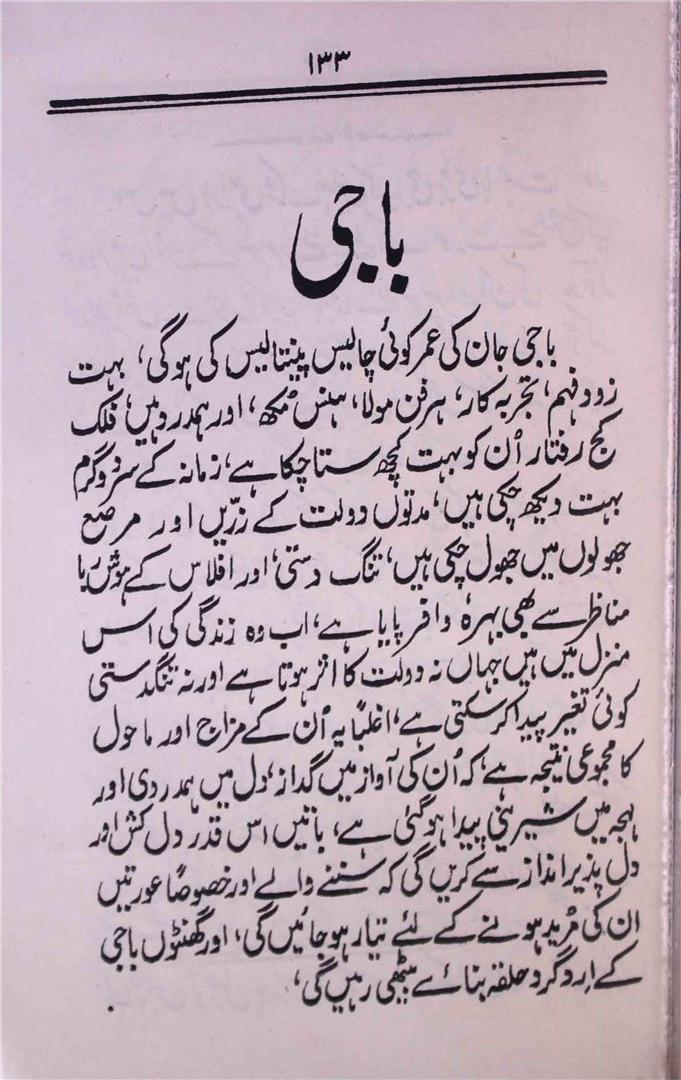 ۱۳۳
باجی
باجی جان کی عمر کوئی چالیس پینتالیس کی ہوگی، بہت
زود فہم، تجربہ کار، ہر فن مولا، ہنس مُکھ، اور ہمدرد ہیں، فلک
کج رفتار اُن کو بہت کچھ ستا چکا ہے، زمانہ کے سرد و گرم
بہت دیکھ چکی ہیں، مدتوں دولت کے زرّیں اور مرصع
جھولوں میں جھول چکی ہیں، تنگ دستی، اور افلاس کے ہوش رُبا
مناظر سے بھی بہرہ وافر پایا ہے، اب وہ زندگی کی اس
منزل میں ہیں جہاں نہ دولت کا اثر ہوتا ہے اور نہ تنگدستی
کوئی تغیر پیدا کر سکتی ہے، اغلباً یہ اُن کے مزاج اور ماحول
کا مجموعی نتیجہ ہے، کہ اُن کی آواز میں گداز، دل میں ہمدردی اور
لہجہ میں شیرینی پیدا ہو گئی ہے، باتیں اس قدر دل کش اور
دل پذیر انداز سے کریں گی کہ سننے والے اور خصوصاً عورتیں
ان کی مُرید ہونے کے لئے تیار ہو جائیں گی، اور گھنٹوں باجی
کے اِرد گرد حلقہ بنائے بیٹھی رہیں گی،